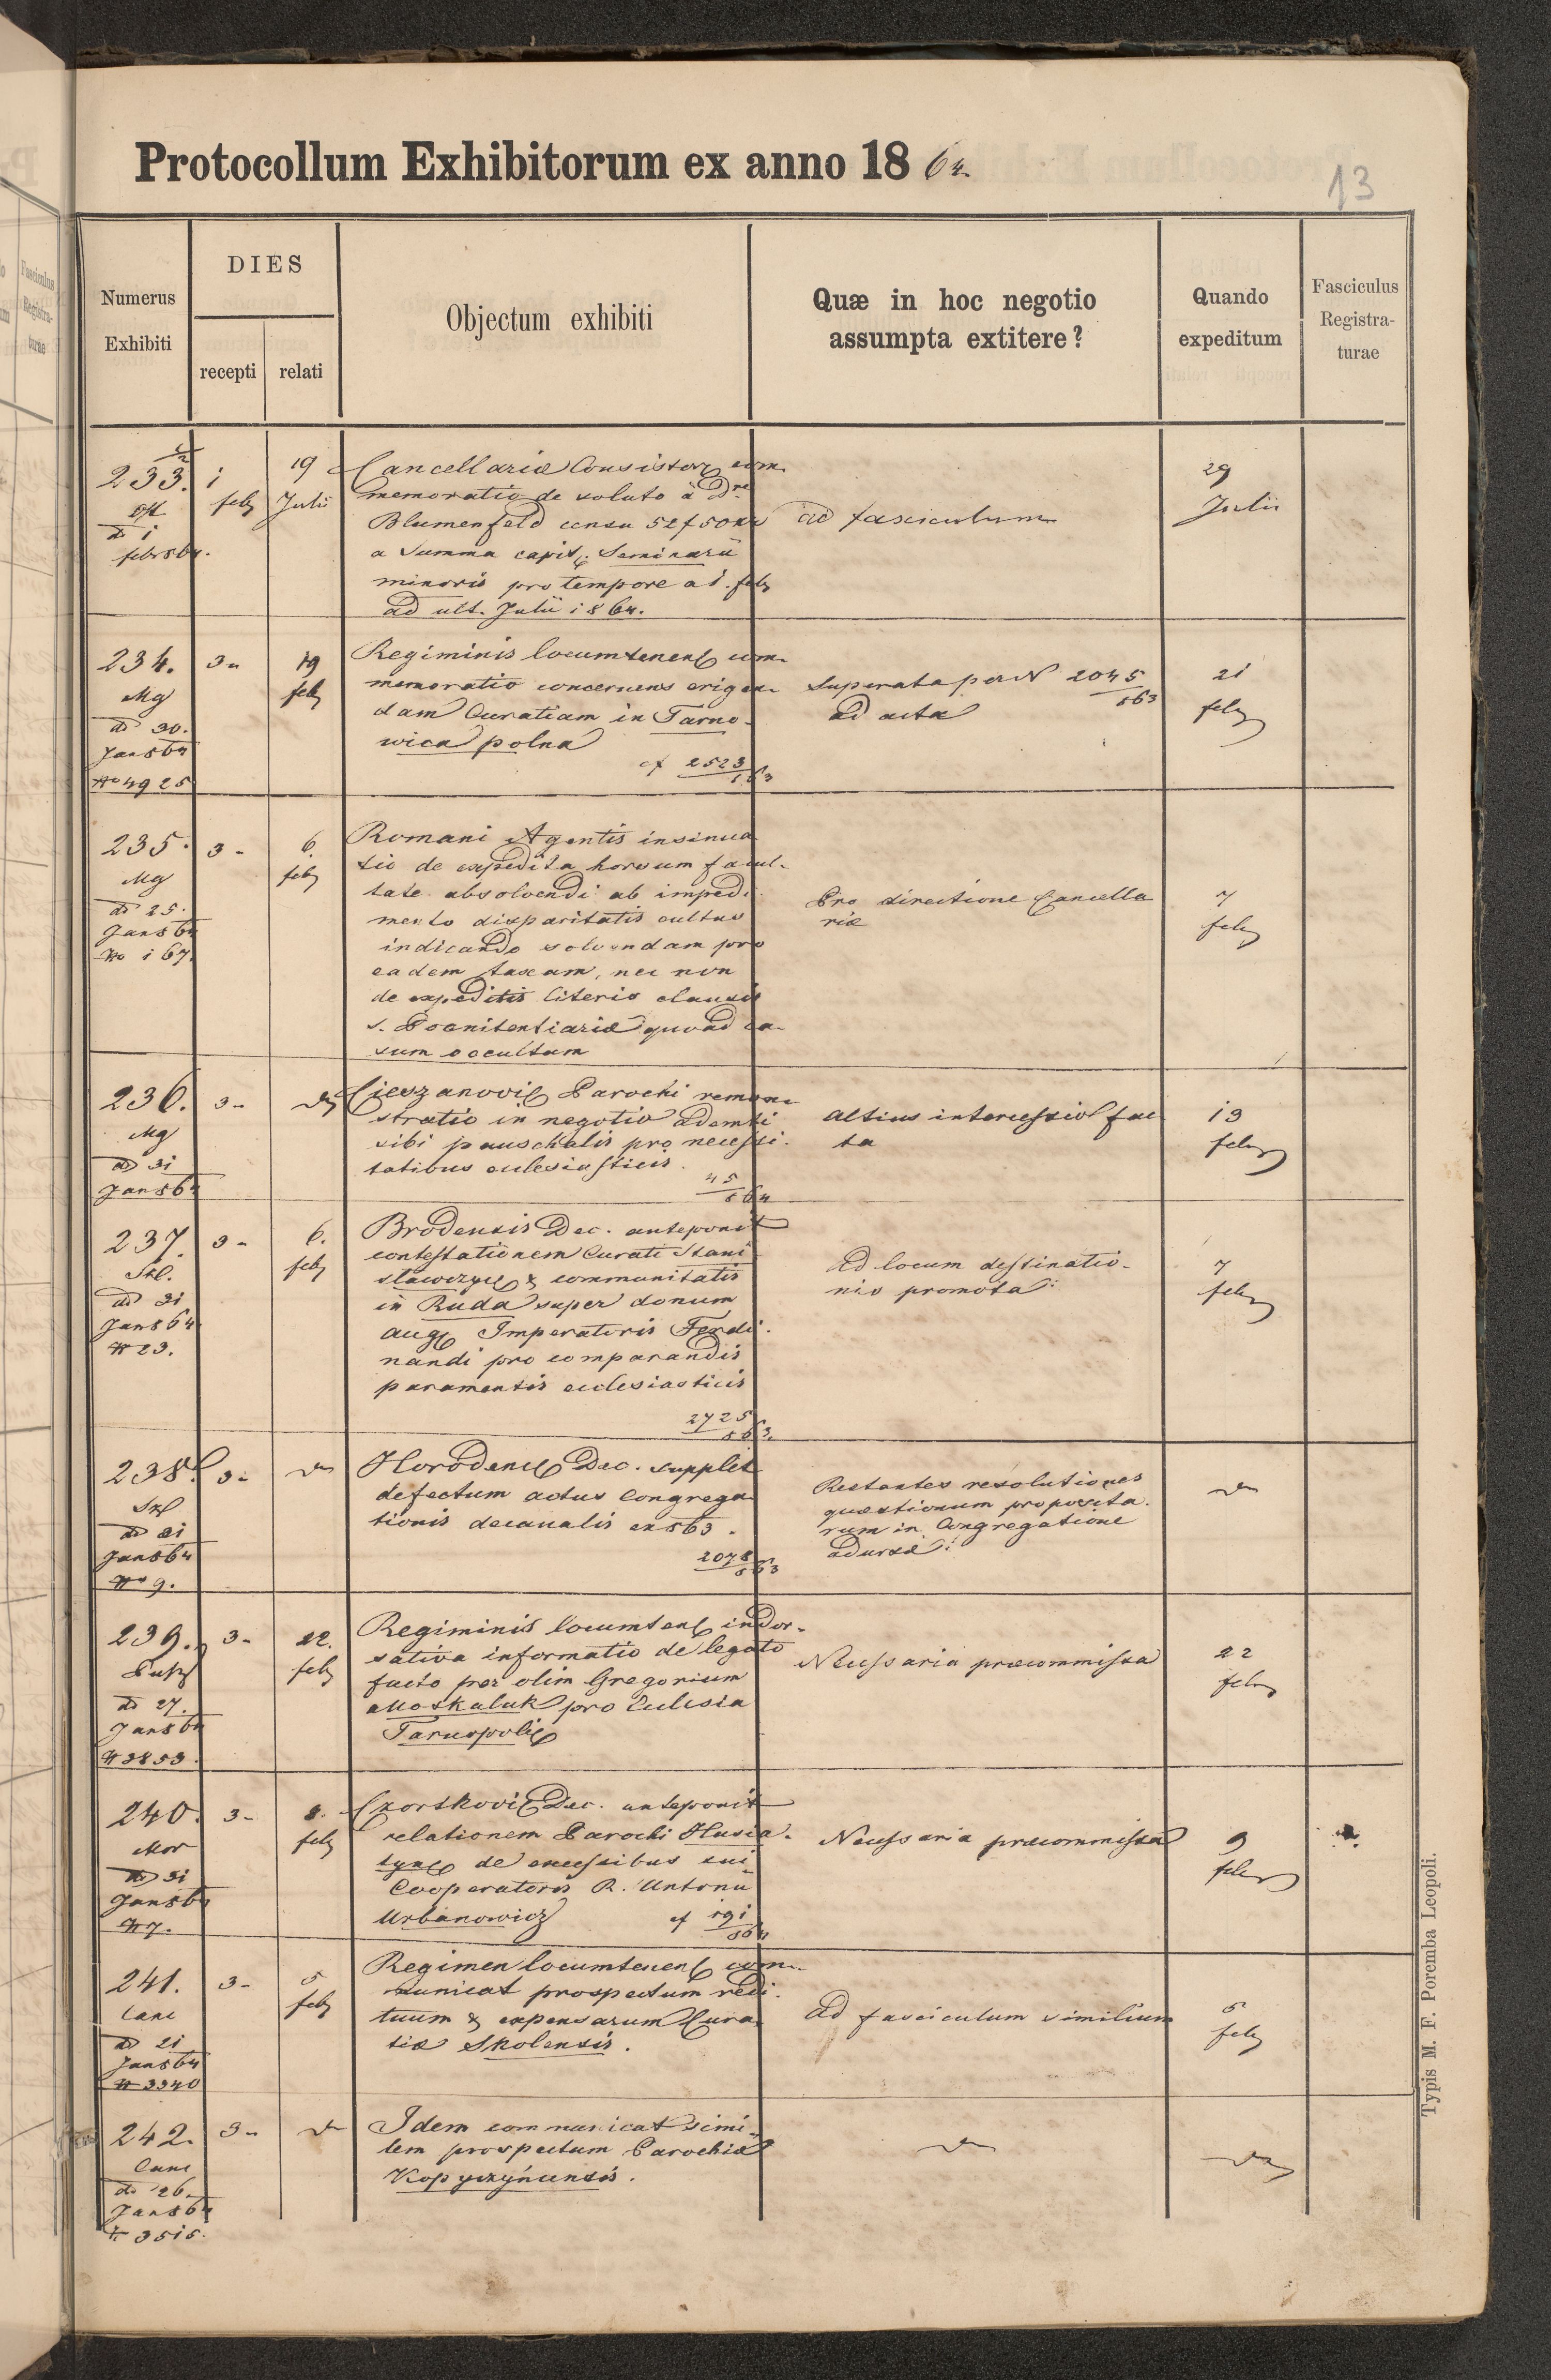 Protocollum Exhibitorum ex anno 18 64.
13
Numerus Exhibiti
DIES
recepti
relati
Objectum exhibiti
Quæ in hoc negotio assumpta extitere?
Quando expeditum
Fasciculus Registra-turae
233.
dd 1
febr 864.
1 feb
19 Julii
Cancellariæ Consistor com
memoratio de soluto à Dre
Blumenfeld censu 52 f 50 xr
a summa capit. Seminarii
minoris pro tempore a 1. feb
ad ult. Julii 1864.
ad fasciculum
29
Julii
234.
Mg
dd 30.
Jan 864
No 4925
3-
19
feb
Regiminis locumtenent com-
memoratio concernens erigen-
dam Curatiam in Tarno-
wica polna
cf 2523/863
Superata per N 2045/863
ad acta
21
feb
235.
Mg
dd 25.
Jan 864
No 167.
3-
6.
feb
Romani Agentis insinua
tio de expedita horsum facul-
tate absolvendi ab impedi
mento disparitatis cultus
indicando solvendam pro
eadem taxam, nec non
de expeditis literis clausis
s. Poenitentiariæ quoad ca-
sum occultum
Pro directione Cancella
riæ
7
feb
236.
Mg
dd 31
Jan 864
3-
Cieszanovi Parochi remon-
stratio in negotio ademti
sibi pauschalis pro necessi-
tatibus ecclesiasticis.
45/864
altius intercessio fac
ta
13
feb
237.
Skl.
dd 31
Jan 864
N 23.
3-
6.
feb
Brodensis Dec. anteponit
contestationem Curati Stani
slawczyc & communitatis
in Ruda super donum
aug Imperatoris Ferdi-
nandi pro comparandis
paramentis ecclesiasticis
2725/863.
ad locum destinatio-
nis promota
7
feb
238.
Skl
dd 21
Jan 864
No 9.
3-
Horodenc Dec. supplet
defectum actus Congrega
tionis decanalis ex 863.
2078/863
Restantes resolutiones
quæstionum proposita-
rum in Congregatione
239.
dd 27.
Jan 864
N 3853.
3-
22.
feb
Regiminis locumten indor-
sativa informatio de legato
facto per olim Gregorium
Moskaluk pro Ecclesia
Tarnopoli
Necessaria præcommissa
22
feb
240.
Mor
dd 31
Jan 864
N 7.
3-
8.
feb
Czortkovi Dec. anteponit
relationem Parochi Husia-
tync de excessibus sui
Cooperatoris R. Antonii
Urbanowicz
cf 191/864
Necessaria præcommissa
9
feb
241.
Canc
dd 21
Jan 864
N 3340
3-
5
feb
Regimen locumtenent com-
municat prospectum redi-
tuum & expensarum Cura
tiæ Skolensis.
ad fasciculum similium
5
feb
242.
Canc
dd 26.
Jan 864
N 3515.
3-
Idem communicat simi-
lem prospectum Parochiæ
Kopyczyńcensis.
Typis M. F. Poremba Leopoli.